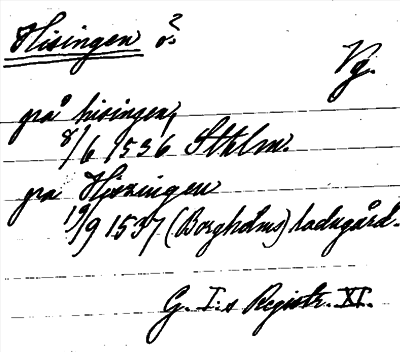 Hisingen ö ?
Vg.
på hisingen,
8/6 1536 Sthlm.
på Hiszingen
19/9 1537 (Borgholms) ladugård.
G. I:s Registr. XI.